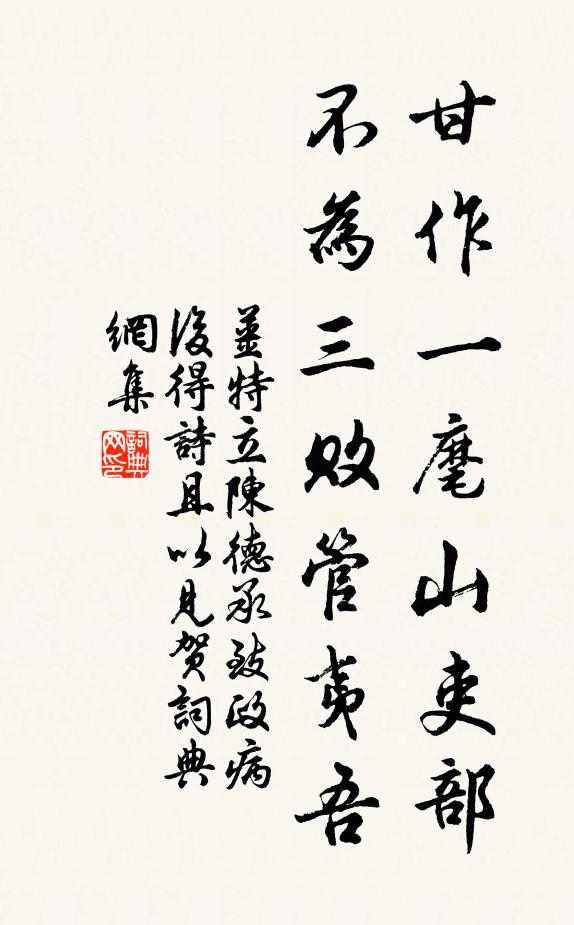 甘作一麾山吏部
不為三敗管夷吾
姜特立陳德承致政病
後得詩且以見賀詞典
網集
詞典
网印